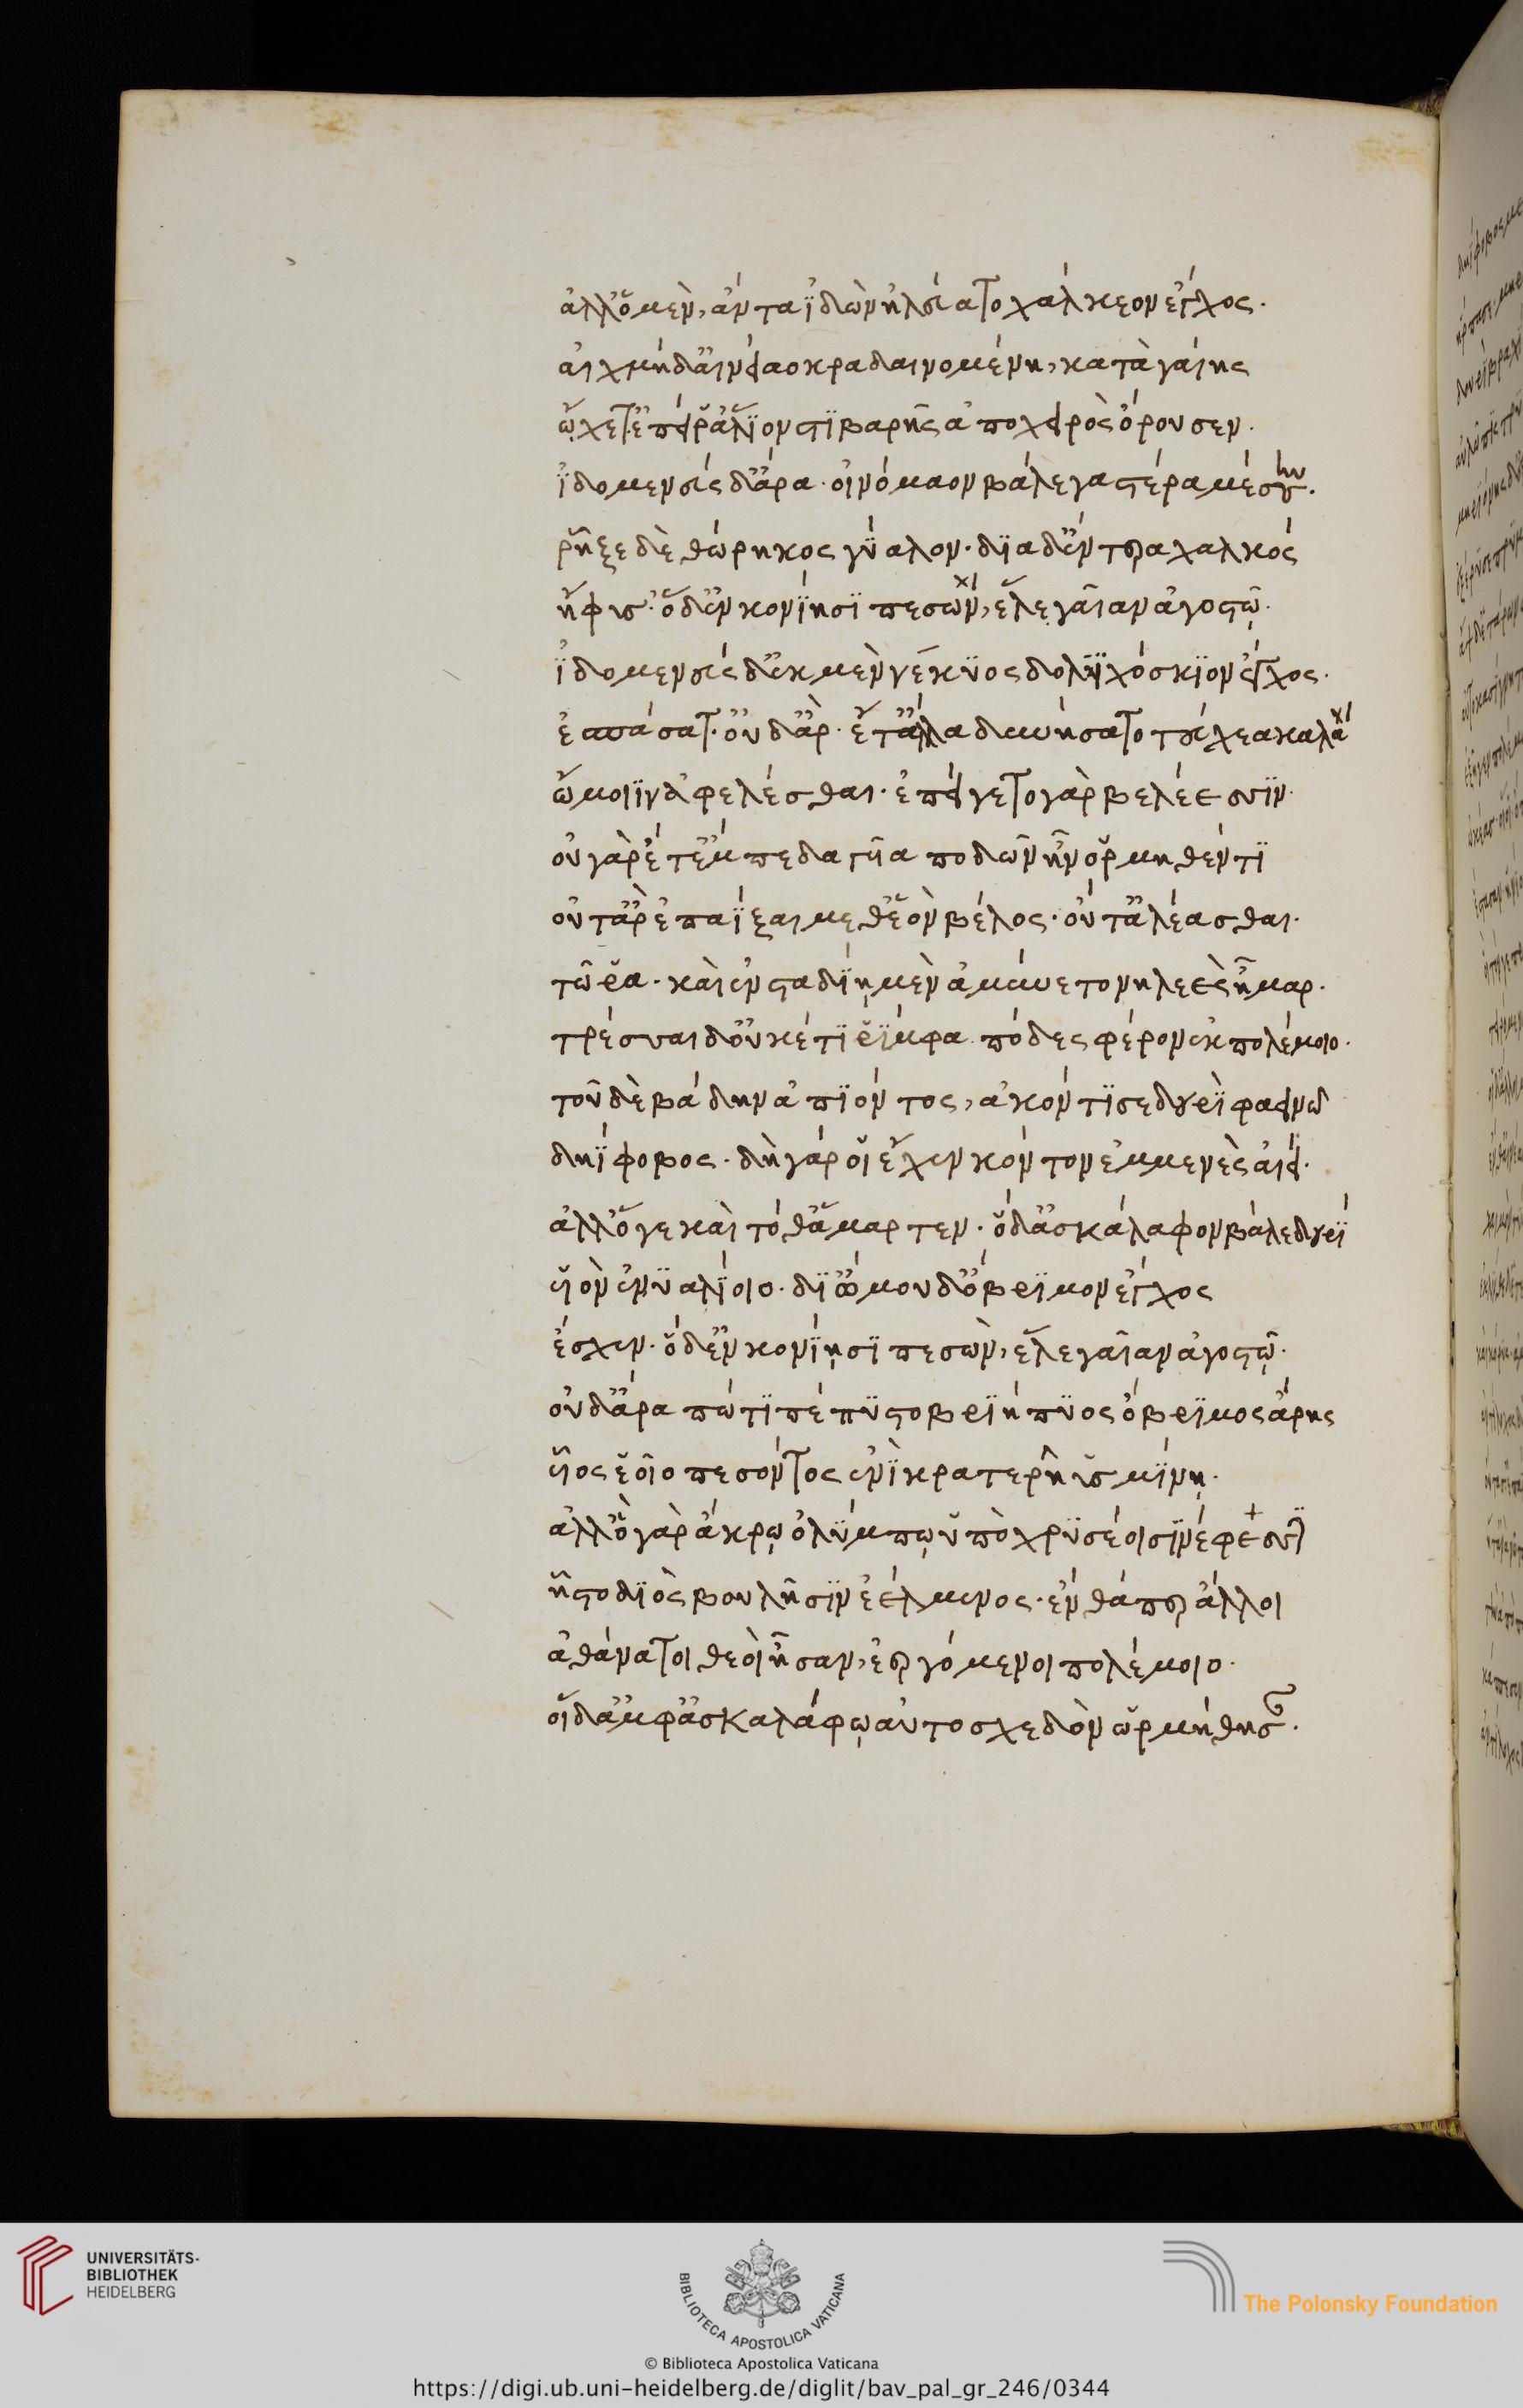 ἀλλ' ὃ μὲν, ἄντα ἰδὼν ἠλεύατο χάλκεον ἔγχος.
αἰχμὴ δ' αἰνείαο κραδαινομένη, κατὰ γαίης
ᾤχετ' ἐπεί ῥ' ἅλιον στιβαρῆς ἀπο χειρὸς ὄρουσεν.
ἰδομενεύς δ' ἄρα. οἰνόμαον βάλε γαστέρα μέσσην.
ῥῆξε δὲ θώρηκος γύαλον. διὰ δ' ἔντερα χαλκός
ἤφυσ'. ὃ δ' ἐν κονίησι πεσὼν, ἕλε γαῖαν ἀγοστῷ.
ἰδομενεύς δ' ἐκ μὲν νέκυος δολιχόσκιον ἔγχος.
ἐσπάσατ'. οὐδ' ἄρ. ἔτ' ἄλλα δυνήσατο τεύχεα καλὰ
ὤμοιϊν ἀφελέσθαι. ἐπείγετο γὰρ βελέεσσιν.
οὐ γὰρ ἔτ' ἔμπεδα γυῖα ποδῶν ἦν ὁρμηθέντι
οὔτ' ἄρ ἐπαΐξαι μεθ' ἑὸν βέλος. οὔτ' ἀλέασθαι.
τῶ ῥα. καὶ ἐν σταδίῃ μὲν ἀμύνετο νηλεὲς ἦμαρ.
τρέσσαι δ' οὐκέτι ῥίμφα πόδες φέρον ἐκ πολέμοιο.
τοῦ δὲ βάδην ἀπιόντος, ἀκόντισε δουρὶ φαεινῷ
δηΐφοβος. δὴ γάρ οἱ ἔχεν κόντον ἐμμενὲς αἰεί.
ἀλλ' ὅ γε καὶ τόθ' ἅμαρτεν. ὃ δ' ἀσκάλαφον βάλε δουρὶ
υἱὸν ἐνυαλίοιο. δι' ὤμου δ' ὄβριμον ἔγχος
ἔσχεν. ὃ δ' ἐν κονίῃσι πεσὼν, ἕλε γαῖαν ἀγοστῷ.
οὐδ' ἄρα πώ τι πέπυστο βριήπυος ὄβριμος ἄρης
υἷος ἑοῖο πεσόντος ἐνὶ κρατερῇ ὑσμίνῃ.
ἀλλ' ὃ γὰρ ἄκρῳ ὀλύμπῳ ὑπὸ χρυσέοισι νέφεσσιν
ἧστο διὸς βουλῇσιν ἐελμένος. ἔνθά περ ἄλλοι
ἀθάνατοι θεοὶ ἦσαν, ἐεργόμενοι πολέμοιο.
οἳ δ' ἀμφ' ἀσκαλάφῳ αὐτοσχεδὸν ὡρμήθησαν.
UNIVERSITÄTS-
BIBLIOTHEK
HEIDELBERG
BIBLIOTECA APOSTOLICA VATICANA
The Polonsky Foundation
© Biblioteca Apostolica Vaticana
https://digi.ub.uni-heidelberg.de/diglit/bav_pal_gr_246/0344